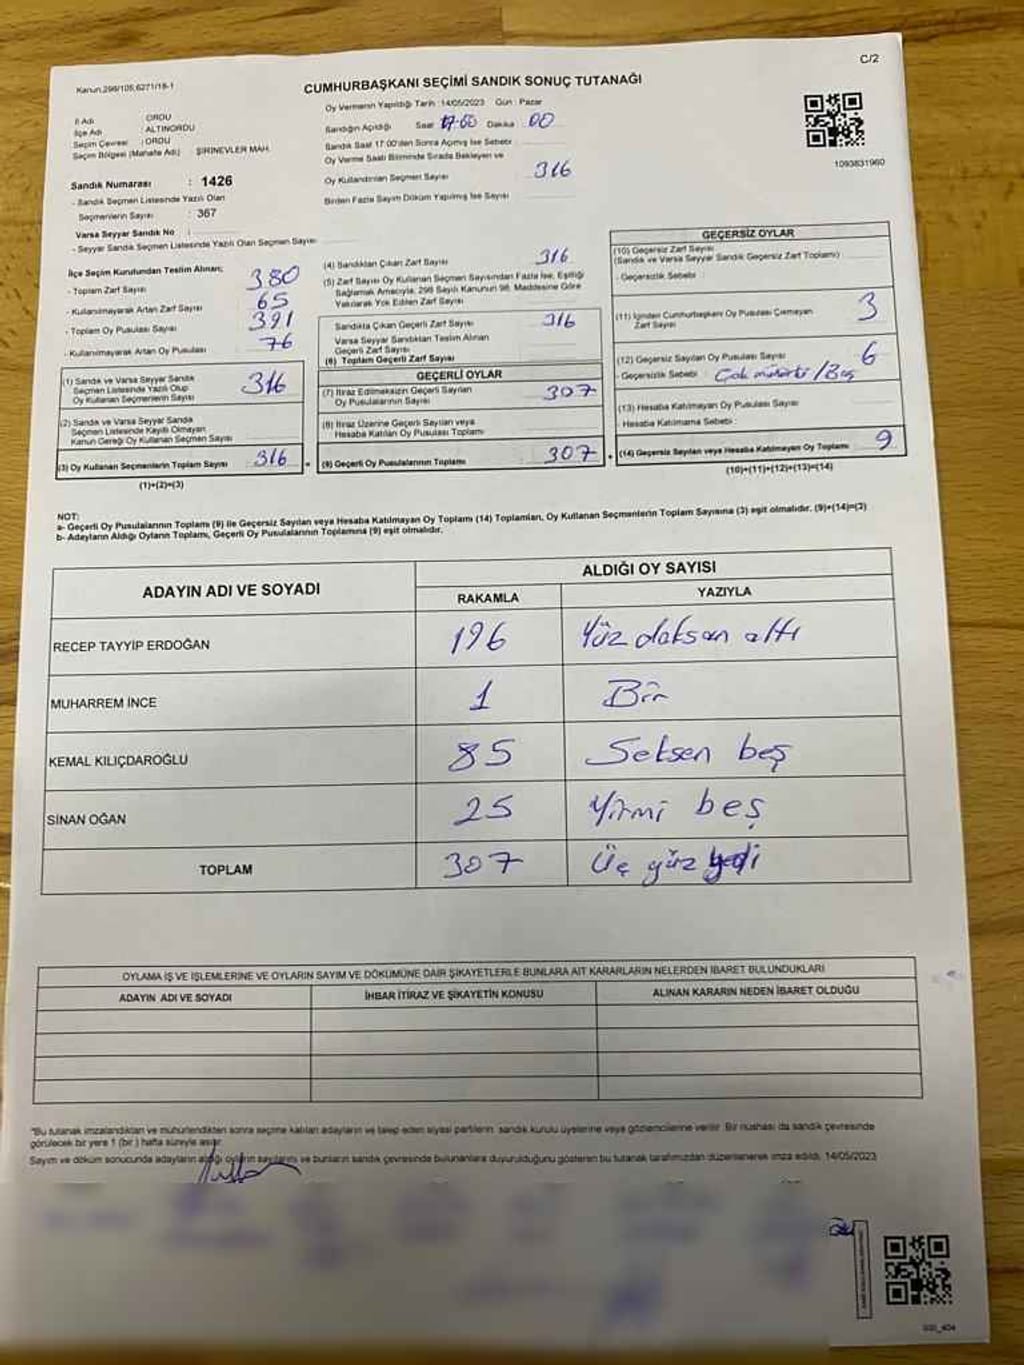 Kanun,298/105;6271/18-1
C/2
CUMHURBAŞKANI SEÇİMİ SANDIK SONUÇ TUTANAĞI
Oy Vermenin Yapıldığı Tarih :14/05/2023 Gün : Pazar
İl Adı : ORDU
İlçe Adı : ALTINORDU
Seçim Çevresi : ORDU
Seçim Bölgesi (Mahalle Adı) : ŞİRİNEVLER MAH.
Sandığın Açıldığı Saat 17:00 Dakika 00
Sandık Saat 17:00'den Sonra Açılmış İse Sebebi
Oy Verme Saati Bitiminde Sırada Bekleyen ve
Oy Kullandırılan Seçmen Sayısı 316
Birden Fazla Sayım Döküm Yapılmış İse Sayısı
1093831960
Sandık Numarası : 1426
- Sandık Seçmen Listesinde Yazılı Olan
Seçmenlerin Sayısı : 367
Varsa Seyyar Sandık No :
- Seyyar Sandık Seçmen Listesinde Yazılı Olan Seçmen Sayısı:
İlçe Seçim Kurulundan Teslim Alınan;
- Toplam Zarf Sayısı 380
- Kullanılmayarak Artan Zarf Sayısı 65
- Toplam Oy Pusulası Sayısı 391
- Kullanılmayarak Artan Oy Pusulası 76
(1) Sandık ve Varsa Seyyar Sandık
Seçmen Listesinde Yazılı Olup
Oy Kullanan Seçmenlerin Sayısı 316
(2) Sandık ve Varsa Seyyar Sandık
Seçmen Listesinde Kayıtlı Olmayan
Kanun Gereği Oy Kullanan Seçmen Sayısı
(3) Oy Kullanan Seçmenlerin Toplam Sayısı 316
(1)+(2)=(3)
(4) Sandıktan Çıkan Zarf Sayısı 316
(5) Zarf Sayısı Oy Kullanan Seçmen Sayısından Fazla İse, Eşitliği
Sağlamak Amacıyla, 298 Sayılı Kanunun 98. Maddesine Göre
Yakılarak Yok Edilen Zarf Sayısı
Sandıkta Çıkan Geçerli Zarf Sayısı 316
Varsa Seyyar Sandıktan Teslim Alınan
Geçerli Zarf Sayısı
(6) Toplam Geçerli Zarf Sayısı
GEÇERLİ OYLAR
(7) İtiraz Edilmeksizin Geçerli Sayılan
Oy Pusulalarının Sayısı 307
(8) İtiraz Üzerine Geçerli Sayılan ve
Hesaba Katılan Oy Pusulası Toplamı
= (9) Geçerli Oy Pusulalarının Toplamı 307
GEÇERSİZ OYLAR
(10) Geçersiz Zarf Sayısı
(Sandık ve Varsa Seyyar Sandık Geçersiz Zarf Toplamı)
- Geçersizlik Sebebi :
(11) İçinden Cumhurbaşkanı Oy Pusulası Çıkmayan
Zarf Sayısı 3
(12) Geçersiz Sayılan Oy Pusulası Sayısı 6
- Geçersizlik Sebebi : Çok mühürlü / Boş
(13) Hesaba Katılmayan Oy Pusulası Sayısı
- Hesaba Katılmama Sebebi :
+ (14) Geçersiz Sayılan veya Hesaba Katılmayan Oy Toplamı 9
(10)+(11)+(12)+(13)=(14)
NOT:
a- Geçerli Oy Pusulalarının Toplamı (9) ile Geçersiz Sayılan veya Hesaba Katılmayan Oy Toplamı (14) Toplamları, Oy Kullanan Seçmenlerin Toplam Sayısına (3) eşit olmalıdır. (9)+(14)=(3)
b- Adayların Aldığı Oyların Toplamı, Geçerli Oy Pusulalarının Toplamına (9) eşit olmalıdır.
ADAYIN ADI VE SOYADI
ALDIĞI OY SAYISI
RAKAMLA YAZIYLA
RECEP TAYYİP ERDOĞAN 196 Yüz doksan altı
MUHARREM İNCE 1 Bir
KEMAL KILIÇDAROĞLU 85 Seksen beş
SİNAN OĞAN 25 Yirmi beş
TOPLAM 307 Üç yüz yedi
OYLAMA İŞ VE İŞLEMLERİNE VE OYLARIN SAYIM VE DÖKÜMÜNE DAİR ŞİKAYETLERLE BUNLARA AİT KARARLARIN NELERDEN İBARET BULUNDUKLARI
ADAYIN ADI VE SOYADI İHBAR İTİRAZ VE ŞİKAYETİN KONUSU ALINAN KARARIN NEDEN İBARET OLDUĞU
"Bu tutanak imzalandıktan ve mühürlendikten sonra seçime katılan adayların ve talep eden siyasi partilerin sandık kurulu üyelerine veya gözlemcilerine verilir. Bir nüshası da sandık çevresinde
görülecek bir yere 1 (bir ) hafta süreyle asılır.
Sayım ve döküm sonucunda adayların aldığı oyların sayılarını ve bunların sandık çevresinde bulunanlara duyurulduğunu gösteren bu tutanak tarafımızdan düzenlenerek imza edildi. 14/05/2023